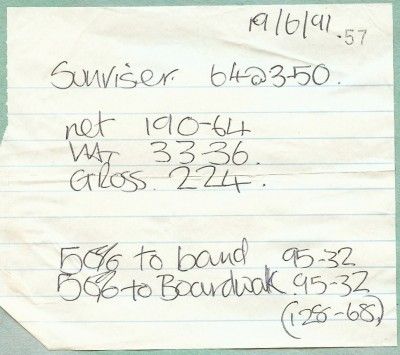 19/6/91
.57
Sunriser. 64@3-50.
net 190-64
VAT 33-36.
Gross. 224.
50% to band 95-32
50% to Boardwalk 95-32
(128-68)